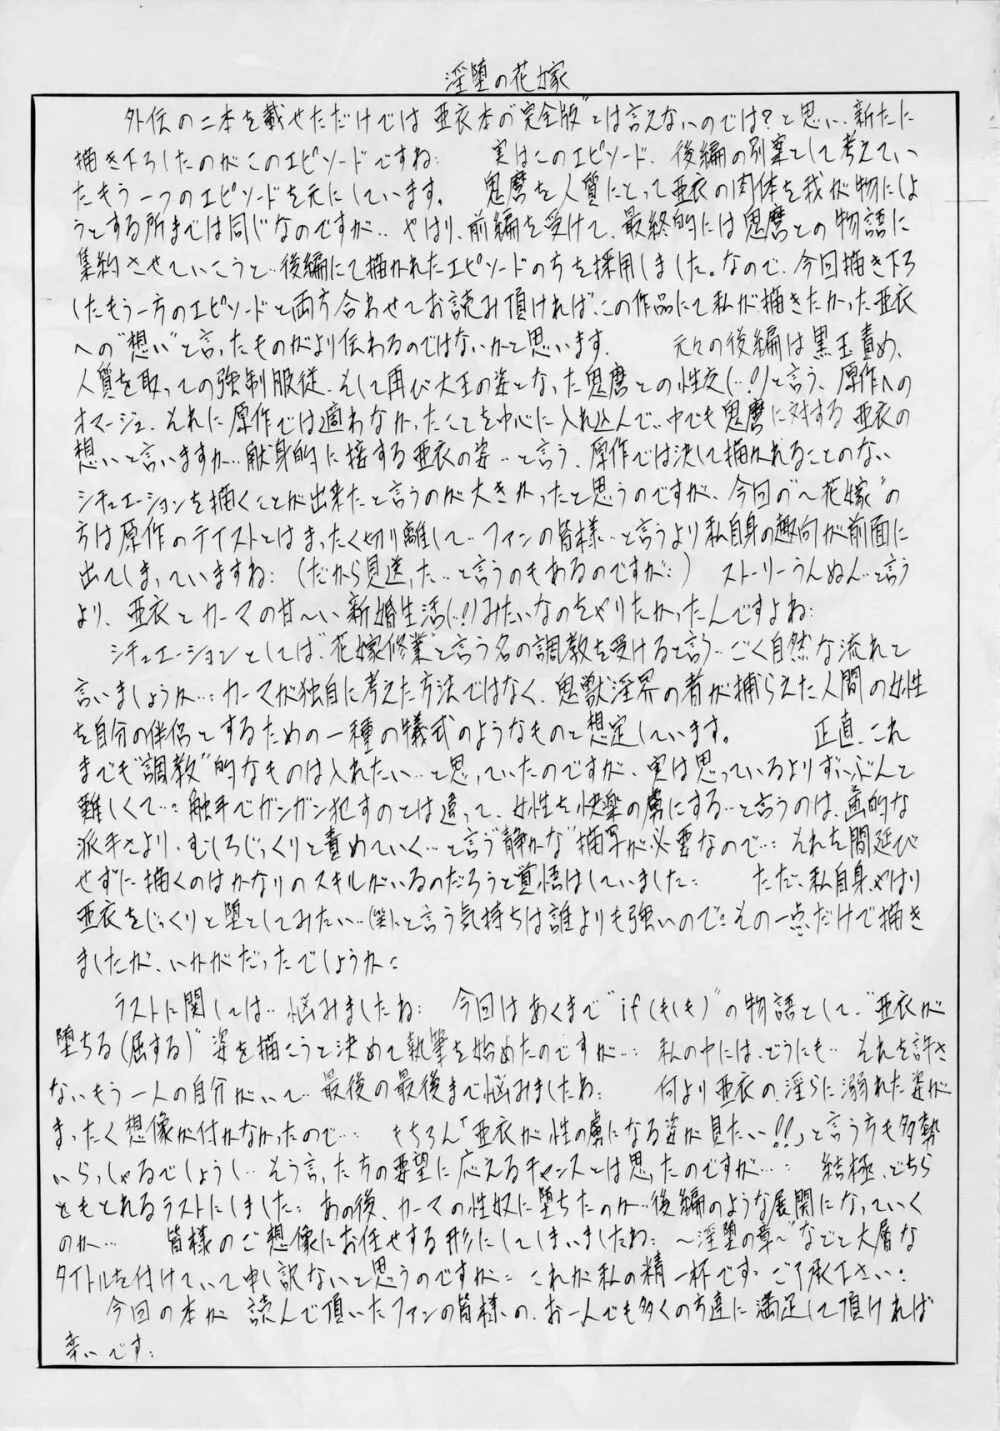 淫堕の花嫁
外伝の二本を載せただけでは亜衣本の"完全版"とは言えないのでは?と思い、新たに
描き下ろしたのがこのエピソードですね: 実はこのエピソード、後編の別案として考えてい
たもう一つのエピソードを元にしています。 鬼麿を人質にとって亜衣の肉体を我が物にしよ
うとする所までは同じなのですが‥やはり、前編を受けて、最終的には鬼麿との物語に
集約させていこうと‥後編にて描かれたエピソードの方を採用しました。なので、今回描き下ろ
したもう一方のエピソードと両方合わせてお読み頂ければ、この作品にて私が描きたかった亜衣
への"想い"と言ったものがより伝わるのではないかと思います。 元々の後編は黒玉責め、
人質を取っての強制服従、そして再び大王の姿となった鬼麿との性交(‥!!)と言う、原作への
オマージュ、それに原作では適わなかったことを中心に入れ込んで‥中でも鬼麿に対する亜衣の
想いと言いますか‥献身的に接する亜衣の姿‥と言う、原作では決して描かれることのない
シチュエーションを描くことが出来たと言うのが大きかったと思うのですが、今回の"〜花嫁"の
方は原作のテイストとはまったく切り離して‥ファンの皆様‥と言うより私自身の趣向が前面に
出てしまっていますね: (だから見送った‥と言うのもあるのですが:) ストーリーうんぬん‥と言う
より、亜衣とカーマの甘〜い新婚生活(!!)みたいなのをやりたかったんですよね:
シチュエーションとしては"花嫁修業"と言う名の調教を受けると言う‥ごく自然な流れと
言いましょうか‥: カーマが独自に考えた方法ではなく、鬼獣淫界の者が捕らえた人間の女性
を自分の伴侶とするための一種の儀式のようなものと想定しています。 正直、これ
までも"調教"的なものは入れたい‥と思っていたのですが、実は思っているよりずいぶんと
難しくて‥: 触手でガンガン犯すのとは違って、女性を快楽の虜にする‥と言うのは、画的な
派手さより、むしろじっくりと責めていく‥と言う"静かな"描写が必要なので‥: それを間延び
せずに描くのはかなりのスキルがいるのだろうと覚悟はしていました: ただ、私自身、やはり
亜衣をじっくりと堕としてみたい‥(笑)、と言う気持ちは誰よりも強いので: その一点だけで描き
ましたが、いかがだったでしょうか:
ラストに関しては‥悩みましたね: 今回はあくまで"if(もしも)"の物語として、"亜衣が
堕ちる(屈する)"姿を描こうと決めて執筆を始めたのですが‥: 私の中には、どうにも‥それを許さ
ないもう一人の自分がいて‥最後の最後まで悩みましたね: 何より亜衣の、淫らに溺れた姿が
まったく想像が付かなかったので‥ もちろん「亜衣が性の虜になる姿が見たい!!」と言う方も多勢
いらっしゃるでしょうし‥そう言った方の要望に応えるチャンスとは思ったのですが‥: 結極、どちら
ともとれるラストにしました: あの後、カーマの性奴に堕ちたのか‥後編のような展開になっていく
のか‥ 皆様のご想像にお任せする形にしてしまいましたね: 〜淫堕の章〜などと大層な
タイトルを付けていて申し訳ないと思うのですが: これが私の精一杯です: ご了承下さい:
今回の本が 読んで頂いたファンの皆様の、お一人でも多くの方達に満足して頂ければ
幸いです: